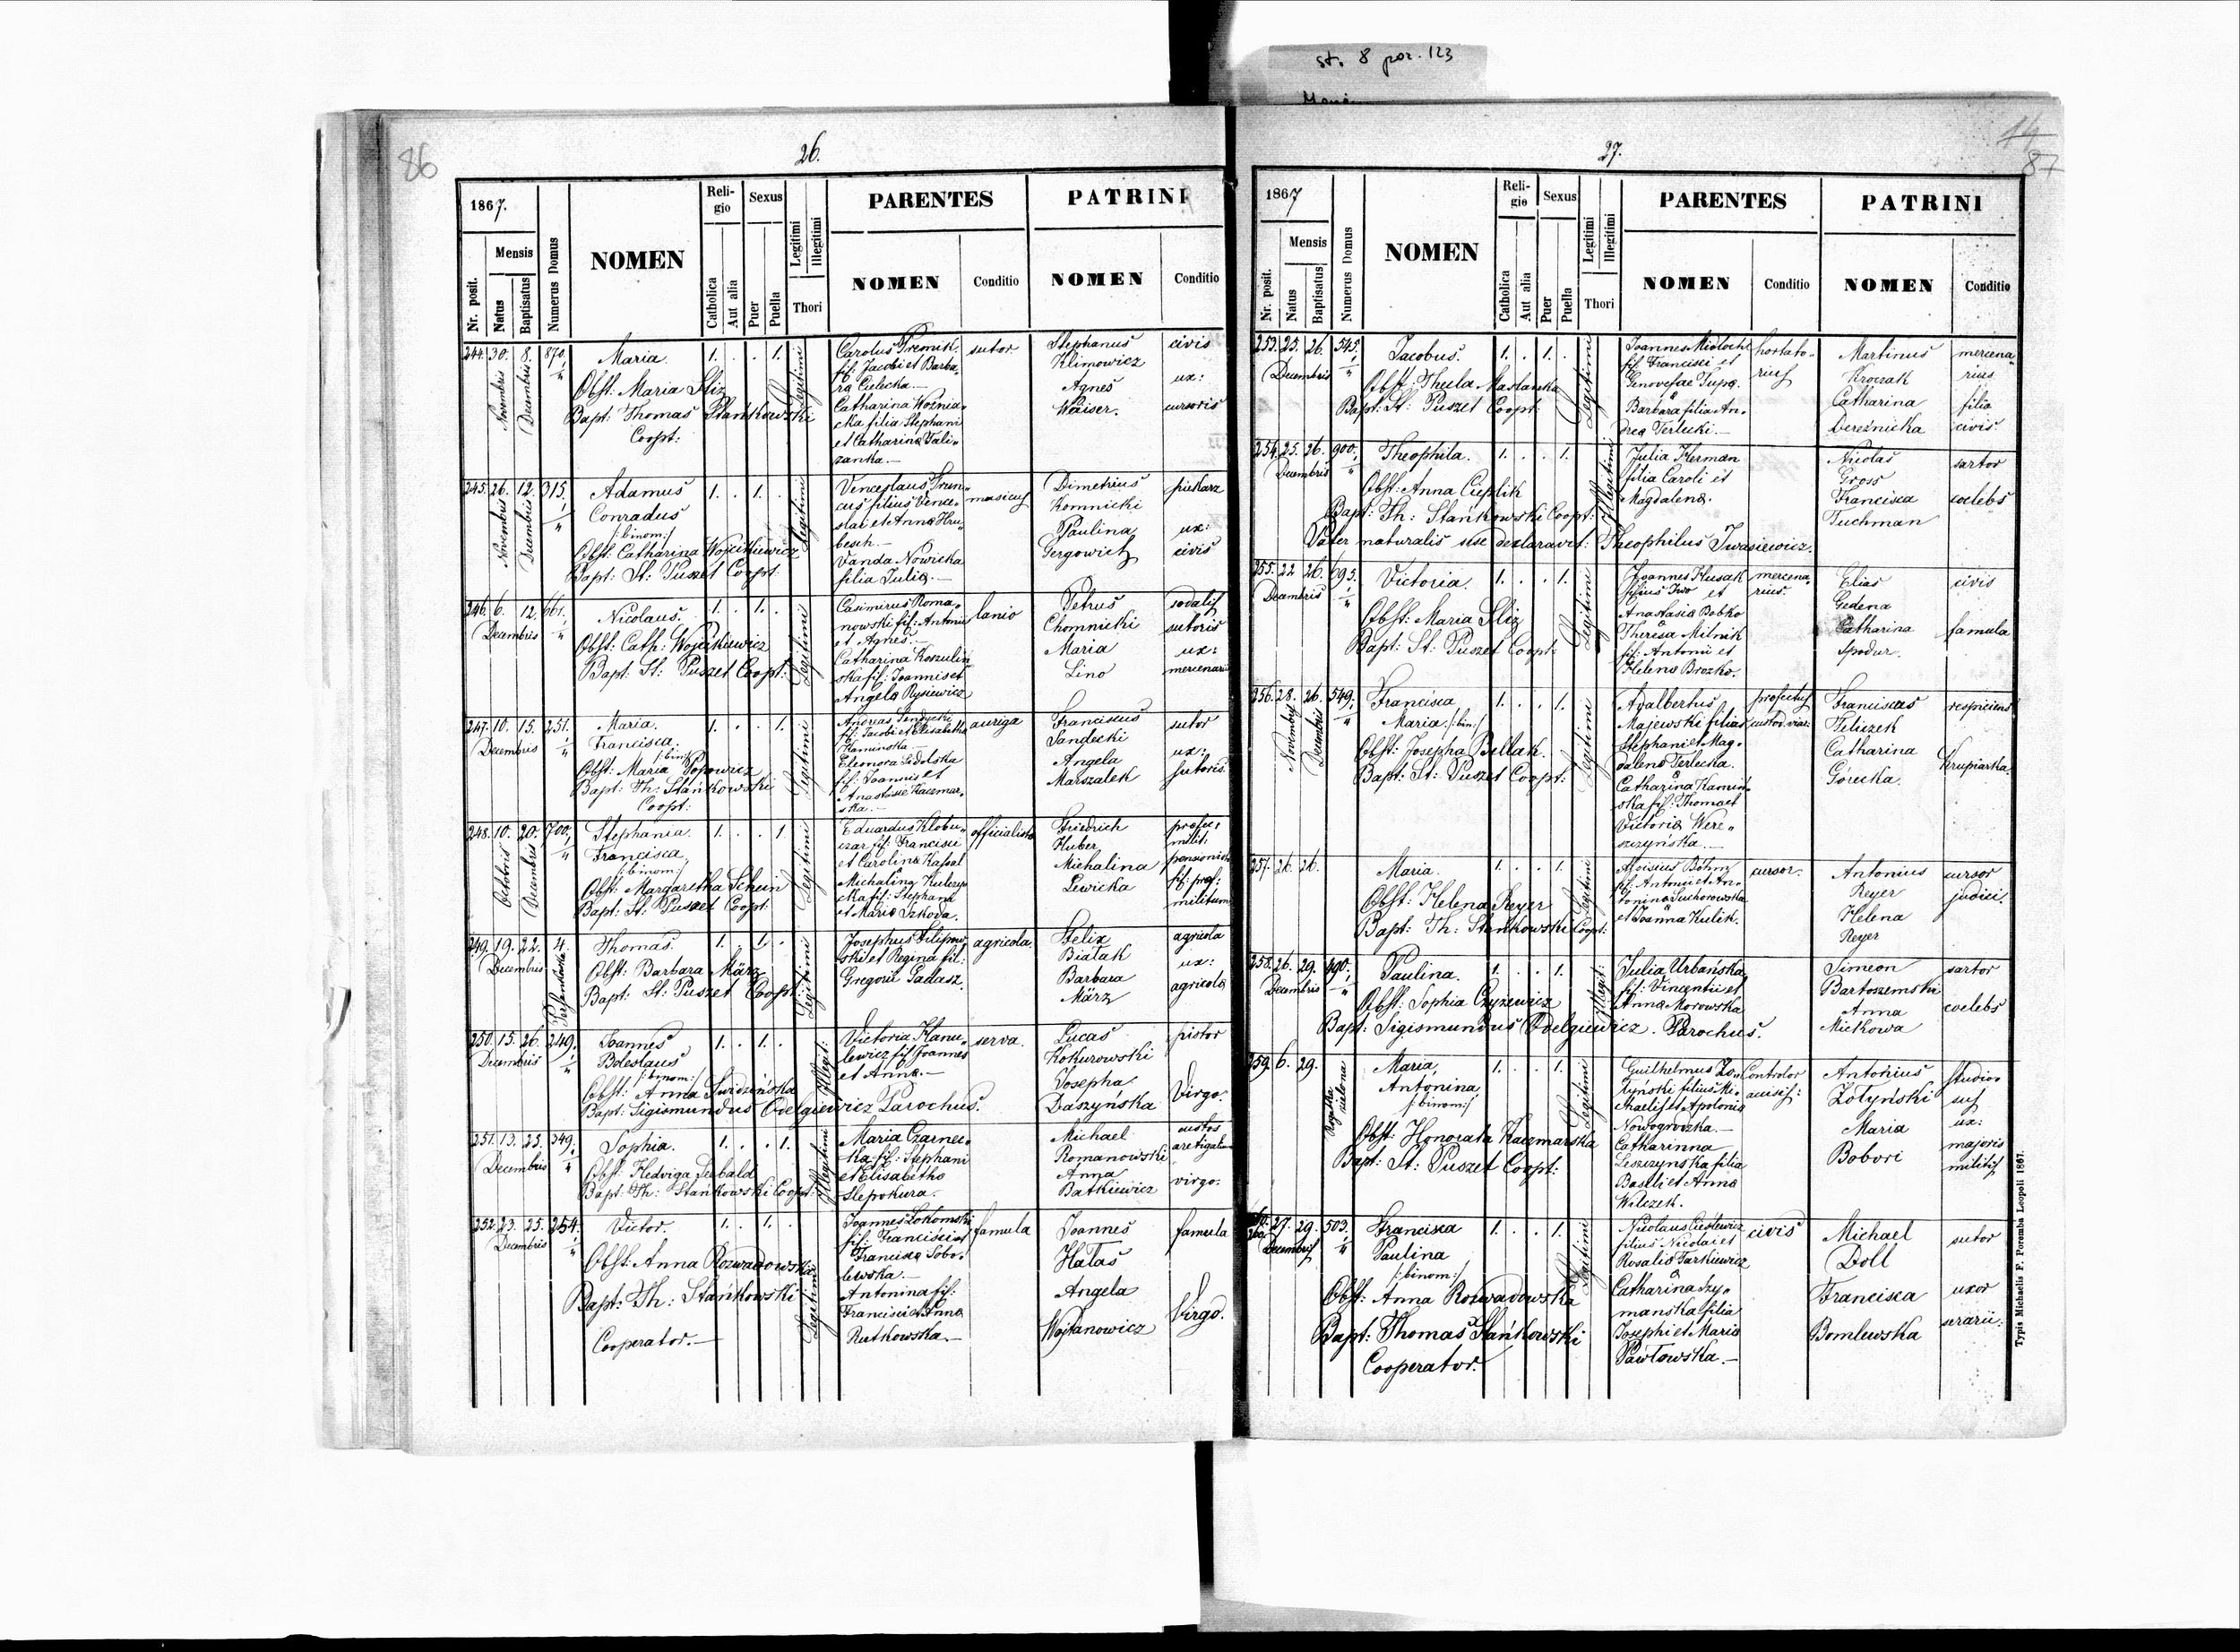 st. 8 poz. 123
86
26.
1867.
Mensis
Nr. posit.
Natus
Baptisatus
Numerus Domus
NOMEN
Religio
Catholica
Aut alia
Sexus
Puer
Puella
Legitimi
Illegitimi
Thori
PARENTES
NOMEN
Conditio
PATRINI
NOMEN
Conditio
244. 30. 8. 870.
Novembris Decembris
Maria
Obst: Maria Sliz
Bapt: Thomas Stańkowski
Coopt:
1. . . 1.
Legitimi
Carolus
fil: Jacobi et Barba-
ra Cielecka.
Catharina Woznia-
cka filia Stephani
et Catharina Vali-
zanka.
sutor
Stephanus
Klimowicz
Agnes
Waiser.
civis
ux:
cursoris
245. 26. 12. 315.
Novembris Decembris
Adamus
Conradus
/:binom:/
Obst: Catharina Wojcikiewicz
Bapt: St: Puszet Coopt:
1. . 1. .
Legitimi
Venceslaus
filius Vence-
slai et Anna Hru-
besch.
Vanda Nowicka
filia Julia.
musicus
Dimetrius
Komnicki
Paulina
Gergowich
piekarz
ux:
civis
246. 6. 12. 661.
Decembris
Nicolaus.
Obst: Cath: Wojcikiewicz
Bapt: St: Puszet Coopt:
1. . 1. .
Legitimi
Casimirus Roma-
nowski fil: Antonii
et Agnes.
Catharina Koszulin
ska fil: Joannis et
Angela Rysiewicz
lanio
Petrus
Chomnicki
Maria
Lino
sodalis
sutoris
ux:
mercenarii
247. 10. 15. 251.
Decembris
Maria
Francisca
/:bin:/
Obst: Maria Popowicz
Bapt: Th: Stańkowski
Coopt:
1. . . 1.
Legitimi
Andreas
fil: Jacobi et Elisabetha
Kaminska
Eleonora
fil: Joannis et
Anastasie Kaczmar-
ska.
auriga
Franciscus
Sandecki
Angela
Marszalek
sutor
ux:
sutoris
248. 10. 20. 700.
Octobris Decembris
Stephania
Francisca
/:binom:/
Obst: Margaretha Schein
Bapt: St: Puszet Coopt:
1. . . 1.
Legitimi
Eduardus Klobu-
czar fil: Francisci
et Carolina
Michalina
fil: Stephani
et Maria Szkoda.
officialista
Friedrich
Huber
Michalina
Lewicka
milit:
fil: prof:
militum
249. 19. 22. 4.
Decembris
Thomas.
Obst: Barbara März
Bapt: St: Puszet Coopt:
1. . 1. .
Legitimi
Josephus Filipow-
ski et Regina fil:
Gregorii Sadasz.
agricola.
Felix
Białak
Barbara
März
agricola
ux:
agricola
250. 15. 26. 249.
Decembris
Joannes
Boleslaus
/:binom:/
Obst: Anna
Bapt: Sigismundus Odelgiewicz Parochus.
1. . 1. .
Illegit:
Victoria Hanu-
lewicz fil Joannes
et Anna.
serva.
Lucas
Kokurowski
Josepha
Daszyńska
pistor
Virgo.
251. 13. 25. 349.
Decembris
Sophia.
Obst: Hedviga Seebald
Bapt: Th: Stańkowski Coopt:
1. . . 1.
Illegitimi
Maria Czarnec-
ka fil: Stephani
et Elisabetha
Slepokura.
Michael
Romanowski
Anna
Batkiewicz
custos
virgo.
252. 23. 25. 254.
Decembris
Victor.
Obst: Anna Rozwadowska
Bapt: Th: Stańkowski
Cooperator.
1. . 1. .
Legitimi
Joannes
fil: Francisci et
Francisca Sobo-
lewska.
Antonina fil:
Francisci et Anna
Rutkowska.
famula
Joannes
Hałas
Angela
Wojtanowicz
famula
Virgo.
14
87
27.
1867
Mensis
Nr. posit.
Natus
Baptisatus
Numerus Domus
NOMEN
Religio
Catholica
Aut alia
Sexus
Puer
Puella
Legitimi
Illegitimi
Thori
PARENTES
NOMEN
Conditio
PATRINI
NOMEN
Conditio
253. 25. 26. 545.
Decembris
Jacobus.
Obst: Thecla Maslanka
Bapt: St: Puszet Coopt:
1. . 1. .
Legitimi
Joannes
fil: Francisci et
Genovefae Supa.
Barbara filia An-
drea Terlecki.
hortato-
rius
Martinus
Kroczak
Catharina
Dereżnicka
mercena-
rius
filia
civis
254. 25. 26. 900.
Decembris
Theophila.
Obst: Anna Cieplik
Bapt: Th: Stańkowski Coopt:
Pater naturalis sese declaravit: Theophilus Iwasiewicz.
1. . . 1.
Illegitimi
Julia Herman
filia Caroli et
Magdalena.
Nicolas
Gross
Francisca
Tuchman
sartor
coelebs
255. 22 26. 695.
Decembris
Victoria
Obst: Maria Sliz
Bapt: St: Puszet Coopt:
1. . . 1.
Legitimi
Joannes Husak
filius Iwo et
Anastasia Bobko
Theresa Milnik
fil: Antonii et
Helena Brozko.
mercena-
rius.
Elias
Gedena
Catharina
Spodur.
civis
famula
256. 28. 26. 549.
Novembris Decembris
Francisca
Maria /:bin:/
Obst: Josepha Bellak.
Bapt: St: Puszet Coopt:
1. . . 1.
Legitimi
Adalbertus
Majewski filius
Stephani et Mag-
dalena Terlecka.
Catharina Kamin-
ska fil: Thoma et
Victoria Were-
szczyńska.
profectus
custod. viae:
Franciscus
Feliczek
Catharina
Górecka.
respiciens
Krupiarka.
257. 26. 26.
Maria.
Obst: Helena Reyer
Bapt: Th: Stańkowski Coopt:
1. . . 1.
Legitimi
Aloisius Böhm
fil: Antonii et An-
tonina Suchorowska
et Joanna Kulik.
cursor.
Antonius
Reyer
Helena
Reyer
cursor
judici.
258. 26. 29. 490.
Decembris
Paulina.
Obst: Sophia Czyzewicz
Bapt: Sigismundus Odelgiewicz. Parochus.
1. . . 1.
Illegit:
Julia Urbańska
fil: Vincentii et
Anna Morowska
Simeon
Bartoszewski
Anna
Mickowa
sartor
coelebs
259. 6. 29.
Rogatka
Maria,
Antonina
/:binom:/
Obst: Honorata Kaczmarska
Bapt: St: Puszet Coopt:
1. . . 1.
Legitimi
Guilhelmus Zo-
tyński filius Mi-
chaelis et Apolonia
Nowogrodzka.
Catharinna
Leszczynska filia
Basili et Anna
Wilczek.
Controlor
Antonius
Zołyński
Maria
Bobori
studio-
sus
ux:
majoris
militis
260. 27. 29. 503.
Decembris
Francisca
Paulina
/:binom:/
Obst: Anna Rozwadowska
Bapt: Thomas Stańkowski
Cooperator.
1. . . 1.
Legitimi
Nicolaus Cieslewicz
filius Nicolai et
Rosalia Tarkiewicz
Catharina Szy-
mańska filia
Josephi et Maria
Pawłowska.
civis
Michael
Doll
Francisca
Bomlewska
sutor
uxor
serarii.
Typis Michaelis F. Poremba Leopoli 1867.